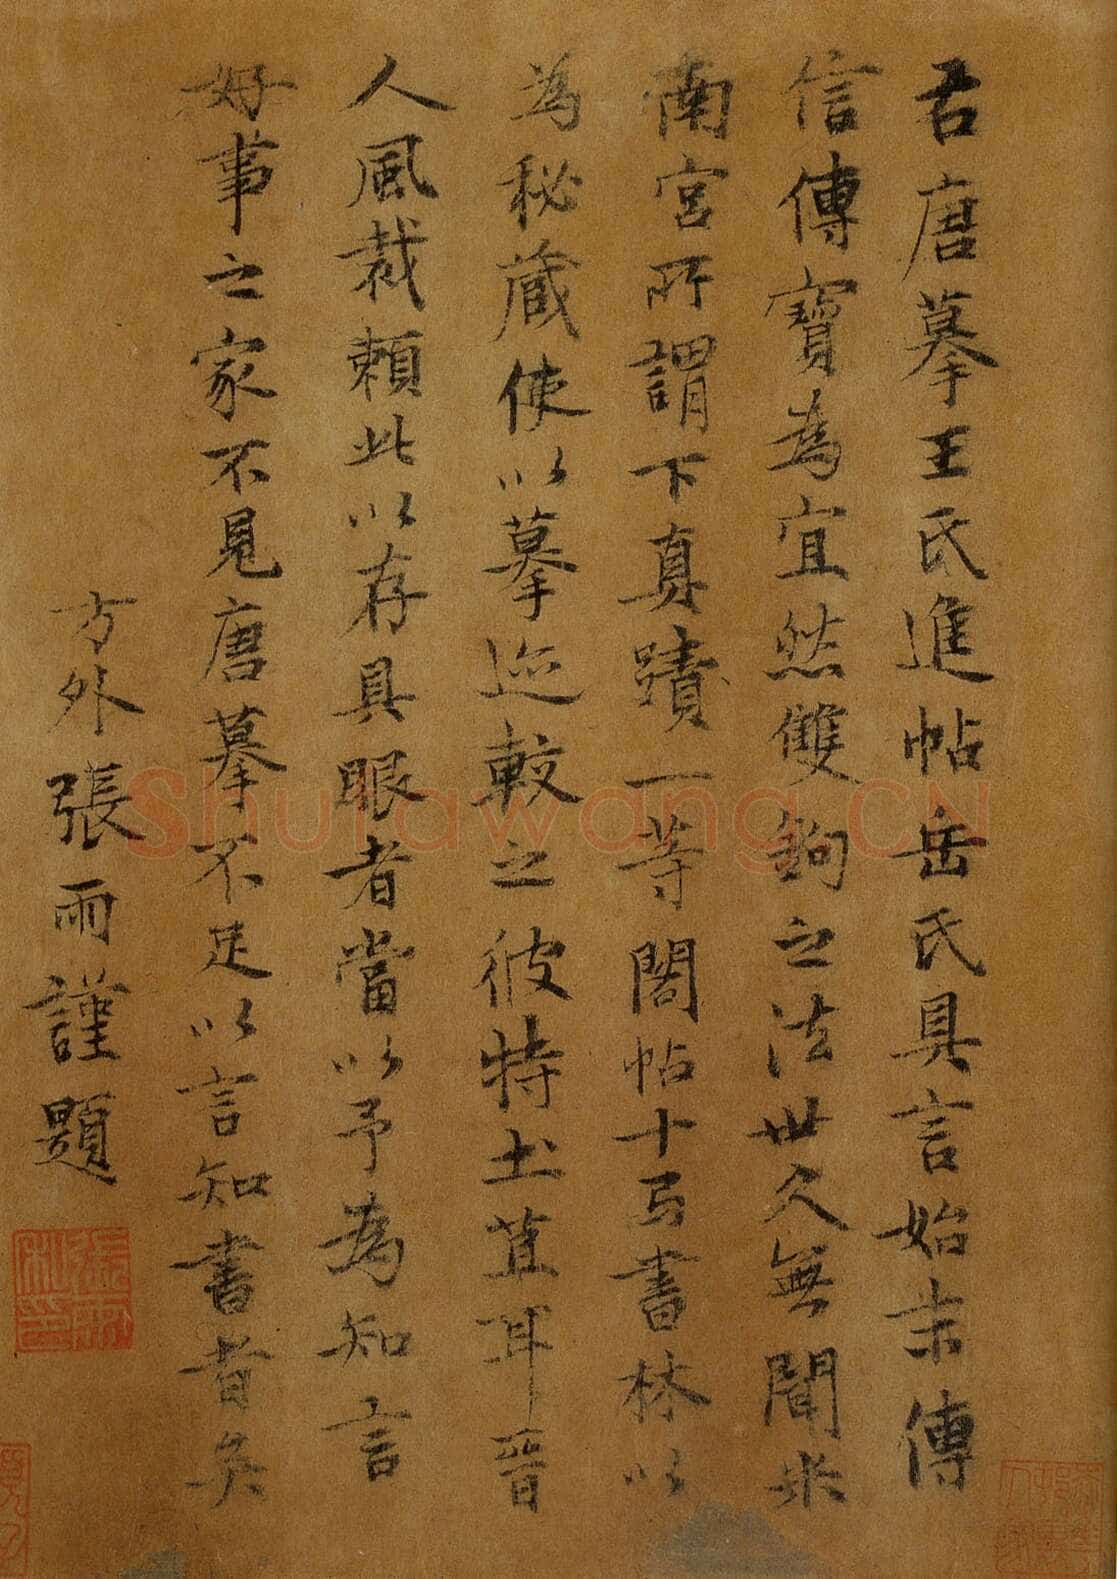 右唐摹王氏進帖岳氏具言始末傳
信傳寶為宜然雙鉤之法世久無聞米
南宮所謂下真蹟一等閣帖十弓書林以
為秘藏使以摹迹較之彼特土苴耳晉
人風裁賴此以存具眼者當以予為知言
好事之家不見唐摹不足以言知書者矣
方外張雨謹題
張雨私印
Shufawang.CN